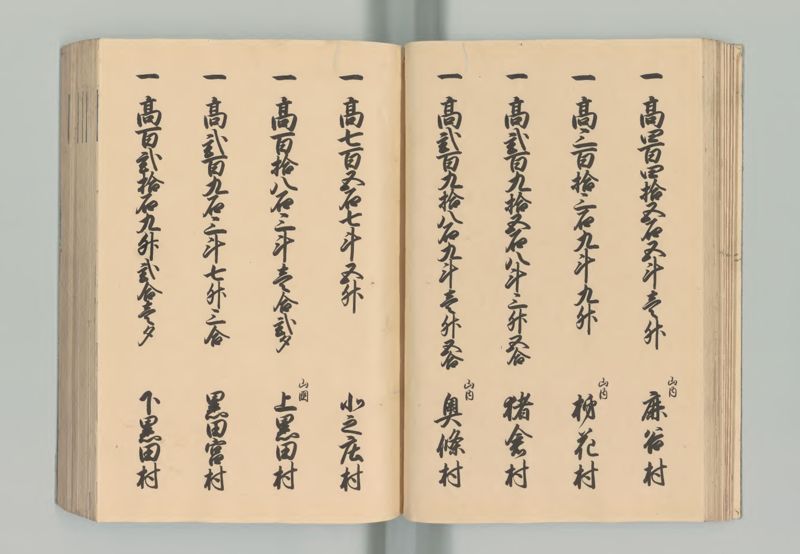 一 高四百四拾五石五斗壱升 山内 麻谷村
一 高三百拾三石九斗九升 山内 栁花村
一 高弐百九拾五石八斗三升五合 猪倉村
一 高弐百九拾八石九斗壱升五合 山内 奥條村
一 高七百五石七斗五升 北之庄村
一 高百拾八石三斗壱合弐夕 山国 上黒田村
一 高弐百九石三斗七升三合 黒田宮村
一 高百弐拾石九升弐合壱夕 下黒田村